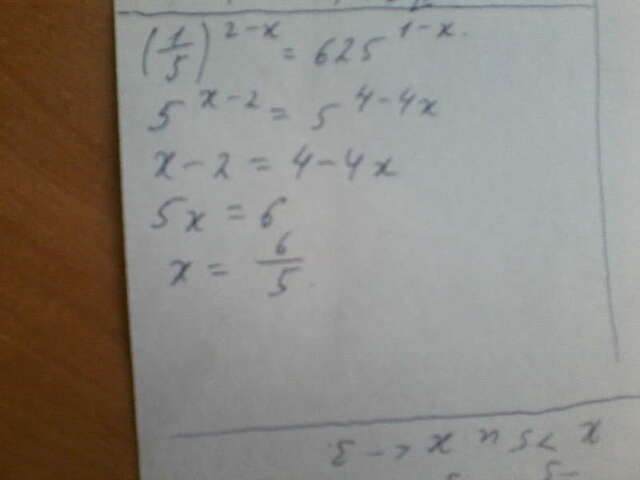 (1/5)^(2-x) = 625^(1-x).
5^(x-2) = 5^(4-4x)
x-2 = 4-4x
5x = 6
x = 6/5.